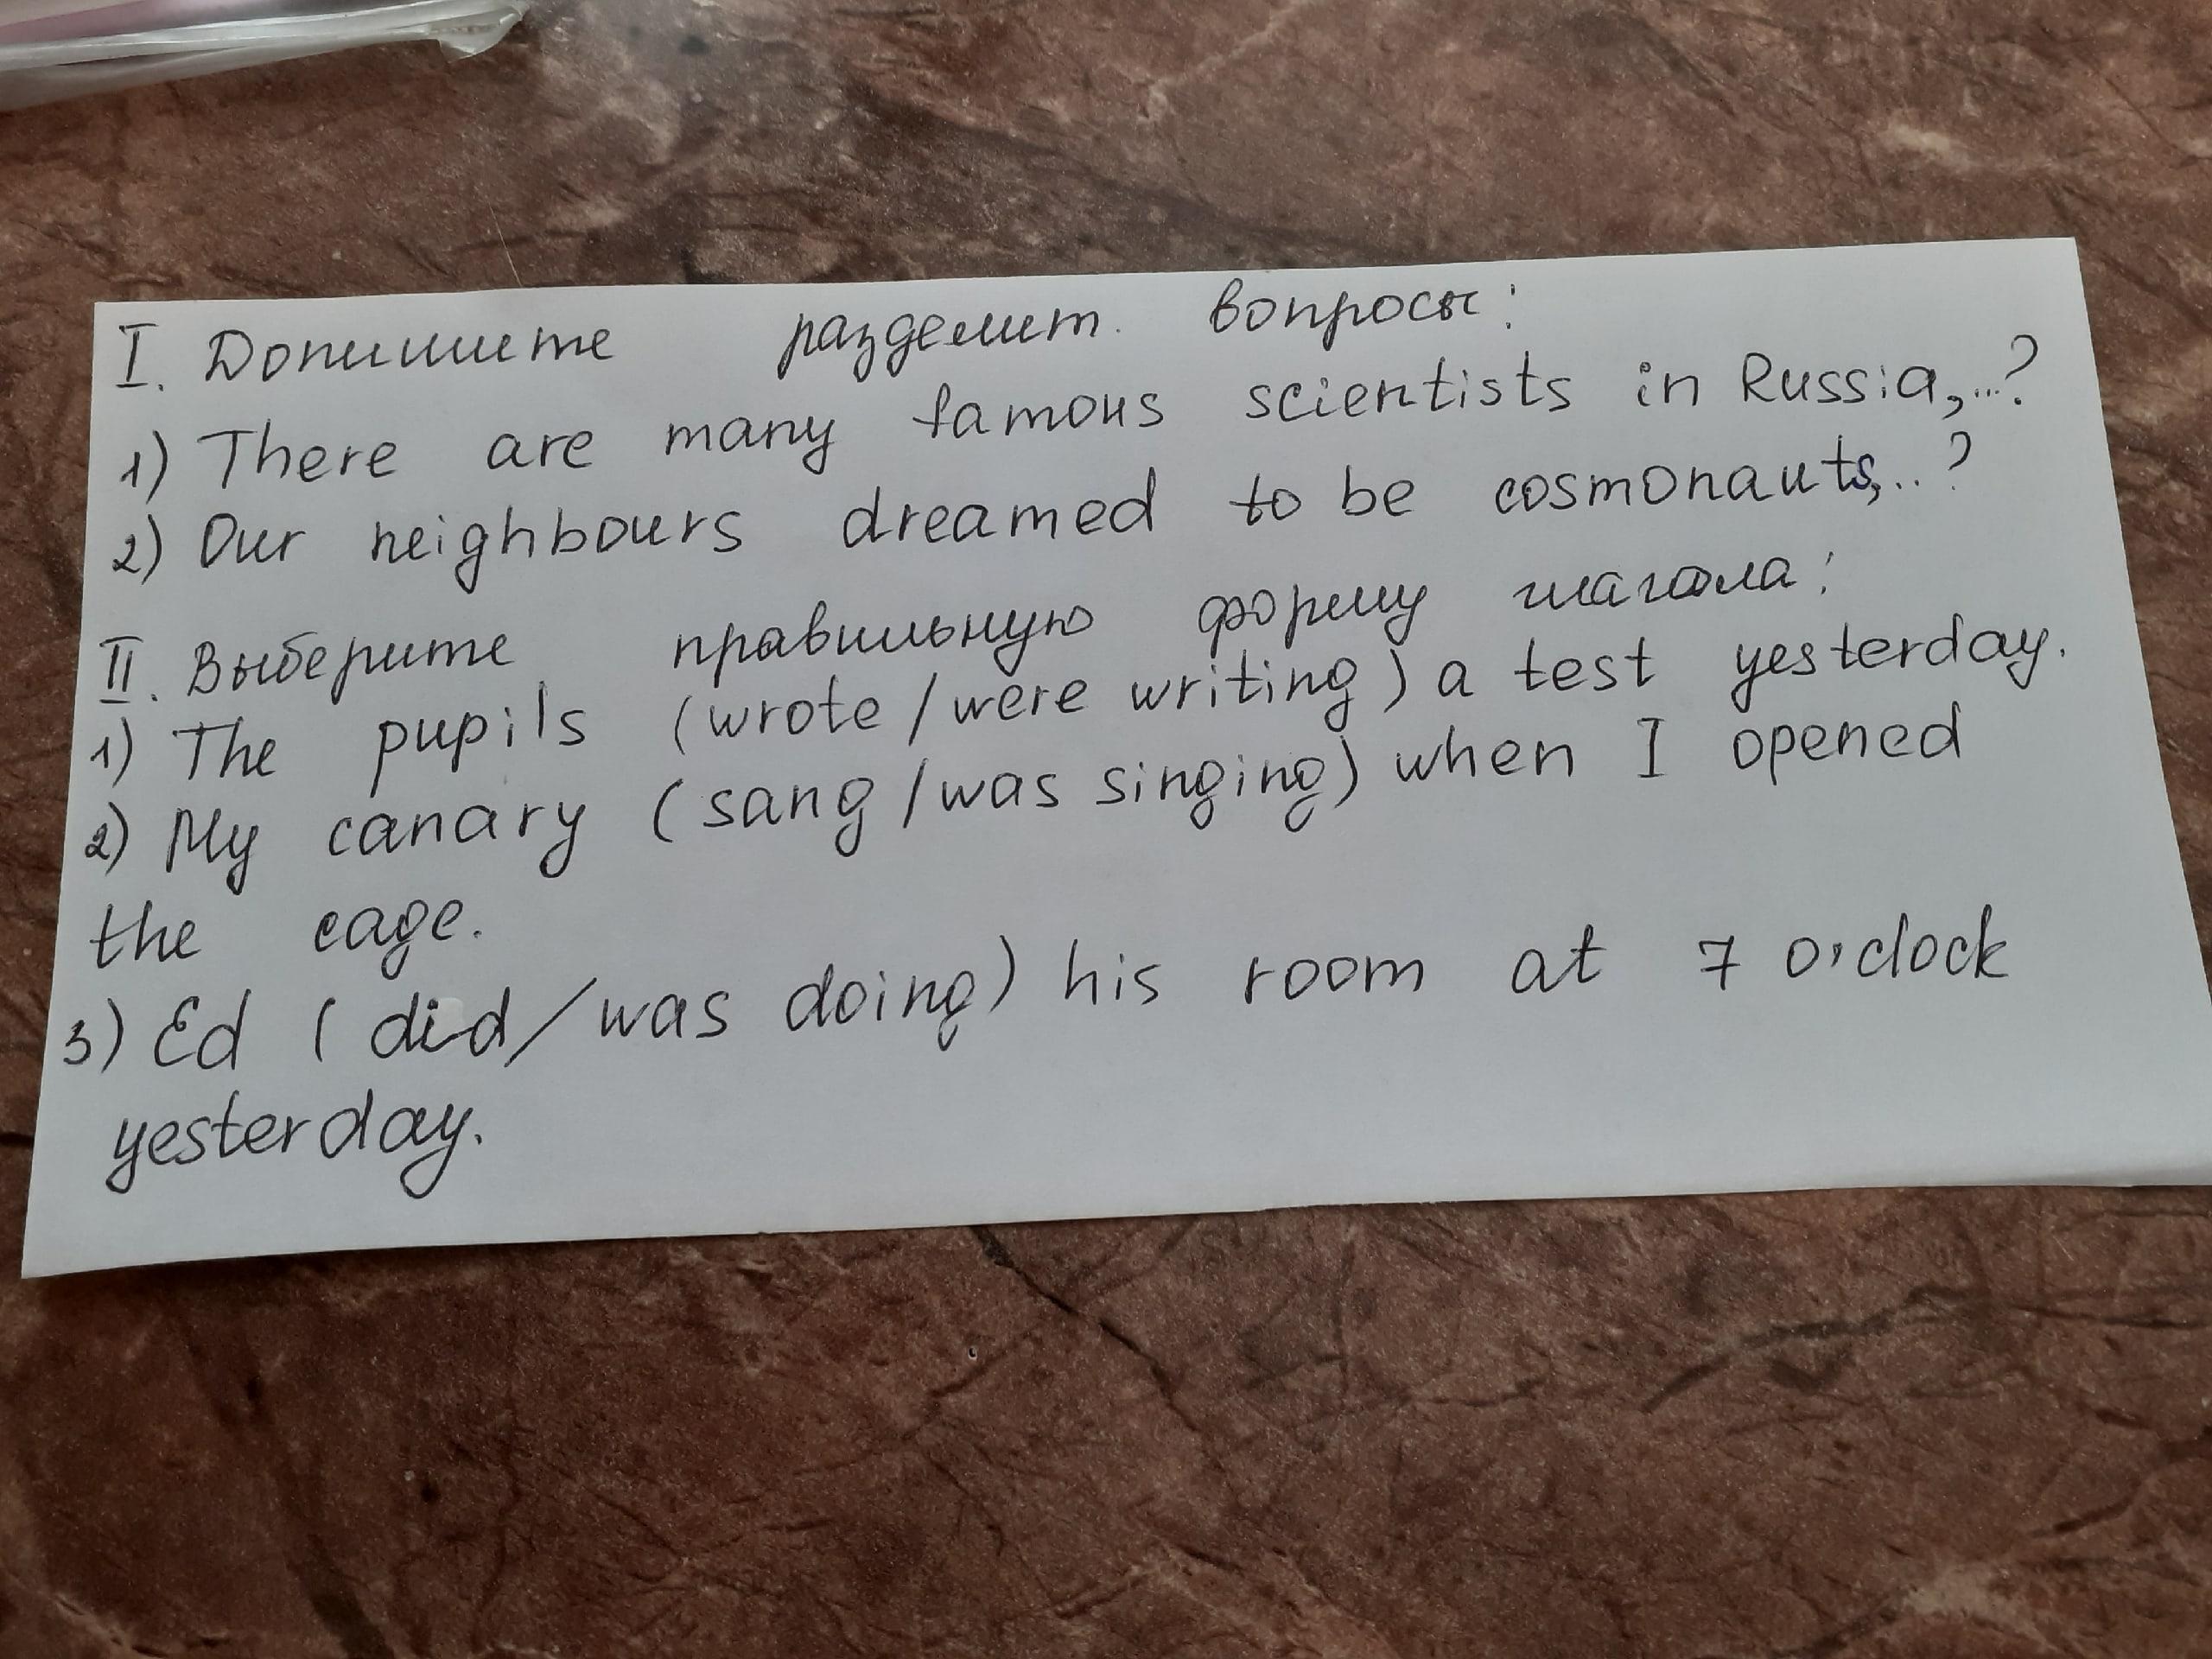 I. Допишите разделит. вопросы:
1) There are many famous scientists in Russia,...?
2) Our neighbours dreamed to be cosmonauts,..?
II. Выберите правильную форму глагола:
1) The pupils (wrote/were writing) a test yesterday.
2) My canary (sang/was singing) when I opened
the cage.
3) Ed (did/was doing) his room at 7 o'clock
yesterday.